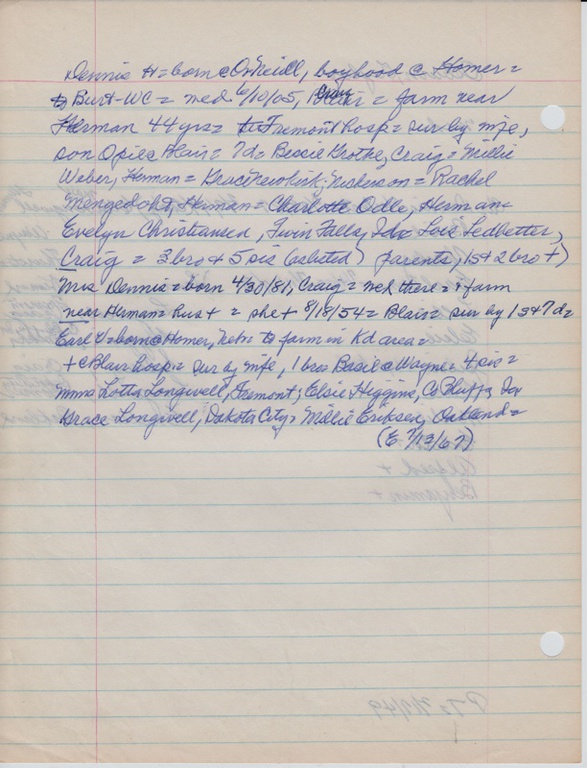 Dennis H = born c O'Neill, boyhood c Homer =
Burt-WC = wed 6/10/05, Craig = farm near
Herman 44 yrs = Fremont hosp = sur by wife,
son Opie c Blair = 7d = Bessie Grothe, Craig = Millie
Weber, Herman = Grace Newkirk, Nickerson = Rachel
Mengedoht, Herman = Charlotte Odle, Herman =
Evelyn Christiansen, Twin Falls, Ida = Lois Ledbetter,
Craig = 3 bro + 5 sis (aslisted) parents, 1s + 2 bro +)
Mrs Dennis = born 4/30/81, Craig = wed there = + farm
near Herman = hus + = she + 8/18/54 = Blair = sur by 1s + 7d =
Earl = born c Homer, to farm in Kd area =
+ c Blair hosp = sur by wife, 1 bro Basil c Wayne = 4 sis =
Mmes Lotta Longwell, Fremont; Elsie Higgins, Co Bluffs, Ia
Grace Longwell, Dakota City, Millie Eriksen, Oakland =
(E 7/13/67)